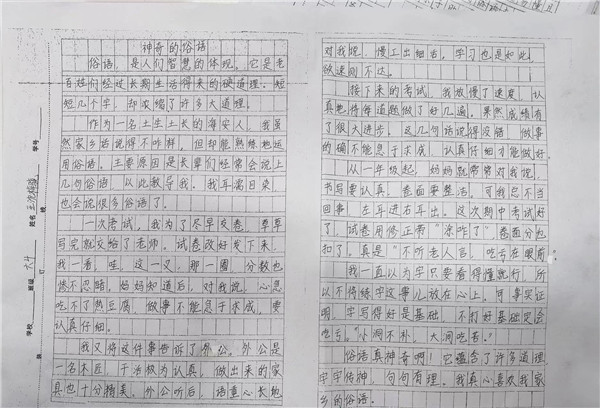 神奇的俗语
俗语,是人们智慧的体现。它是老
百姓们经过长期生活得来的硬道理。短
短几个字,却浓缩了许多大道理。
作为一名土生土长的海安人,我虽
然家乡话说得不咋样,但却能熟练地运
用俗语。主要原因是长辈们经常会说上
几句俗语,以此教导我。我耳濡目染,
也会说很多俗语了。
一次考试,我为了尽早交卷,草草
写完就交给了老师。试卷改好发下来,
我一看,哇,这一叉,那一圈,分数也
惨不忍睹。妈妈知道后,对我说,心急
吃不了热豆腐,做事不能急于求成,要
认真仔细。
我又将这件事告诉了外公。外公是
一名木匠,干活极为认真,做出来的家
具也十分精美。外公听后,语重心长地
对我说,慢工出细活,学习也是如此,
欲速则不达。
接下来的考试,我放慢了速度,认
真地将每道题做了好几遍。果然成绩有
了很大进步。这几句话说得没错,做事
的确不能急于求成,认真仔细才能做好。
从一年级起,妈妈就常常对我说,
书写要认真,卷面要整洁。可我已不当
回事,左耳进右耳出。这次期中考试好
了,试卷用修正带“涂咋了”卷面分丸
扣了。真是“不听老人言,吃亏在眼前”
我一直以为字只要看得懂就行,所
以不将练字这事儿放在心上。可事实证
明,字写得好是基础,不打好基础定会
吃亏。“小洞不补,大洞吃苦。”
俗语真神奇啊!它蕴含了许多道理,
字字传神,句句有理。我真心喜欢我家
乡的俗语。
学校
班级 六4
姓名
学号
装
订
线